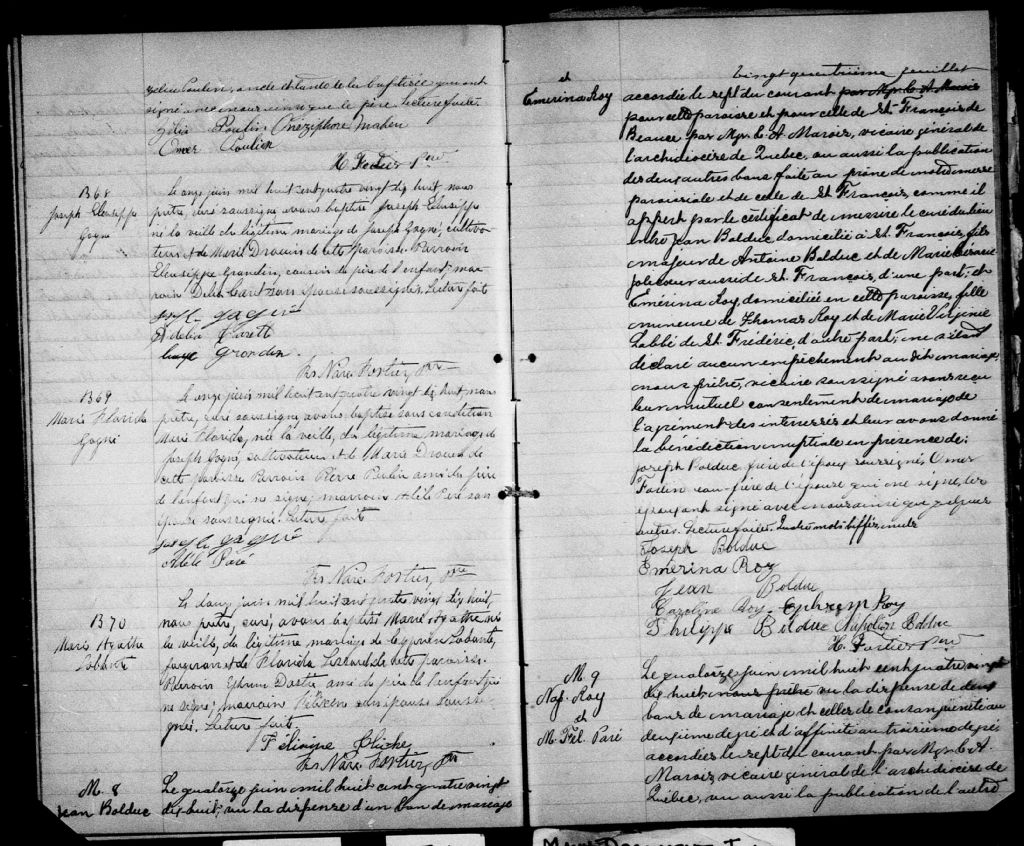 signé avec nous ainsi que le père. Lecture faite
Zélia Poulin Onéziphore Maheu
Omer Poulin
H. Fortier Ptre
B 68
Joseph Eleusippe
Gagné
Le onze juin mil huit cent quatre vingt dix huit nous
prêtre, curé soussigné avons baptisé Joseph Eleusippe
né la veille du légitime mariage de Joseph Gagné, cultiva-
teur et de Marie Drouin de cette paroisse. Parrain
Eleusippe Grondin, cousin du père de l'enfant; mar
raine son épouse soussignés. Lecture faite
Joseph gagné
Delia
Grondin.
Frs Narc. Fortier, Ptre
B 69
Marie Florida
Gagné
Le onze juin mil huit cent quatre vingt dix huit nous
prêtre, curé soussigné avons baptisé sous condition
Marie Florida, née la veille, du légitime mariage de
Joseph Gagné, cultivateur et de Marie Drouin de
cette paroisse Parrain Pierre ami du père
de l'enfant qui ne signe; marraine Adèle Paré son
épouse soussignée. Lecture faite
Joseph gagné
Adèle Paré
Frs Narc. Fortier, Ptre
B 70
Marie Agathe
Le douze juin mil huit cent quatre vingt dix huit,
nous prêtre, curé, avons baptisé Marie Agathe née
la veille, du légitime mariage de Cyprien
forgeron et de Florida de cette paroisse.
Parrain Ephrem ami du père de l'enfant qui
ne signe; marraine son épouse soussi-
gnée. Lecture faite
Cliche
Frs Narc. Fortier, Ptre
M. 8
Jean Bolduc
Le quatorze juin mil huit cent quatre vingt
dix huit, vu la dispense d'un ban de mariage
et
Emérina Roy
vingt quatrième juillet
accordée le sept du courant par Mgr C. A. Marois
pour cette paroisse et pour celle de St. François de
Beauce par Mgr C. A. Marois, vicaire général de
l'archidiocèse de Québec, vu aussi la publication
des deux autres bans faite au prône de notre messe
paroissiale et de celle de St. François comme il
appert par le certificat de messire le curé du lieu
entre Jean Bolduc domicilié à St. François, fils
majeur de Antoine Bolduc et de Marie
Jolicoeur aussi de St. François, d'une part; et
Emérina Roy, domiciliée en cette paroisse, fille
mineure de Thomas Roy et de Marie Virginie
Labbé de St Frédéric, d'autre part; ne s'étant
déclaré aucun empêchement au dit mariage,
nous prêtre, vicaire soussigné avons reçu
leur mutuel consentement de mariage de
l'agrément des intéressés et leur avons donné
la bénédiction nuptiale en présence de:
Joseph Bolduc, frère de l'époux soussigné, Omer
de l'épouse qui ne signe, les
époux ont signé avec nous ainsi que
autres. Lecture faite. Quatre mots biffés nuls
Joseph Bolduc
Emerina Roy
Jean Bolduc
Caroline Roy Ephrem Roy
Philippe Bolduc Napoléon Bolduc
H. Fortier Ptre
M. 9
Nap. Roy
et
M. Paré
Le quatorze juin mil huit cent quatre vingt
dix huit; nous prêtre vu la dispense de deux
bans de mariage et celles de consanguinité au
deuxième degré et d'affinité au troisième degré
accordées le sept du courant par Mgr C. A
Marois, vicaire général de l'archidiocèse de
Québec, vu aussi la publication de l'autre